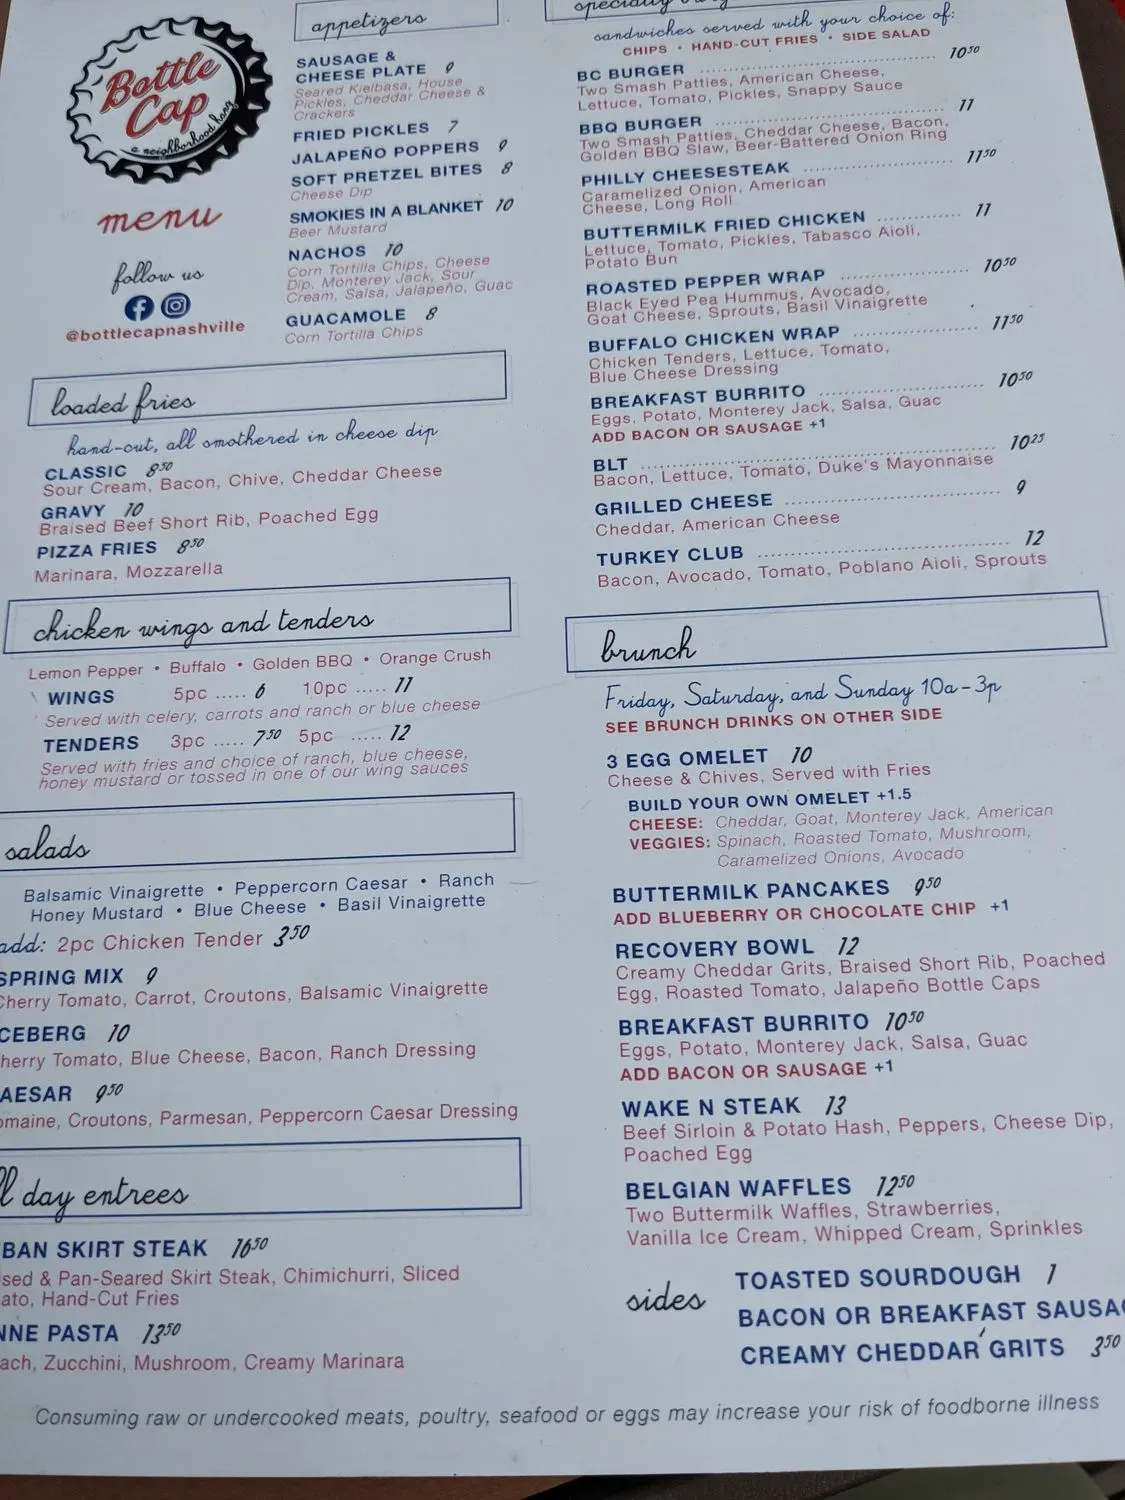 Bottle
Cap
a neighborhood hang
menu
follow us
@bottlecapnashville
appetizers
SAUSAGE &
CHEESE PLATE 9
Seared Kielbasa, House
Pickles, Cheddar Cheese &
Crackers
FRIED PICKLES 7
JALAPEÑO POPPERS 9
SOFT PRETZEL BITES 8
Cheese Dip
SMOKIES IN A BLANKET 10
Beer Mustard
NACHOS 10
Corn Tortilla Chips, Cheese
Dip, Monterey Jack, Sour
Cream, Salsa, Jalapeño, Guac
GUACAMOLE 8
Corn Tortilla Chips
loaded fries
hand-cut, all smothered in cheese dip
CLASSIC 8⁵⁰
Sour Cream, Bacon, Chive, Cheddar Cheese
GRAVY 10
Braised Beef Short Rib, Poached Egg
PIZZA FRIES 8⁵⁰
Marinara, Mozzarella
chicken wings and tenders
Lemon Pepper • Buffalo • Golden BBQ • Orange Crush
WINGS 5pc ..... 6 10pc ..... 11
Served with celery, carrots and ranch or blue cheese
TENDERS 3pc ..... 7⁵⁰ 5pc ..... 12
Served with fries and choice of ranch, blue cheese,
honey mustard or tossed in one of our wing sauces
salads
Balsamic Vinaigrette • Peppercorn Caesar • Ranch
Honey Mustard • Blue Cheese • Basil Vinaigrette
add: 2pc Chicken Tender 3⁵⁰
SPRING MIX 9
Cherry Tomato, Carrot, Croutons, Balsamic Vinaigrette
CEBERG 10
herry Tomato, Blue Cheese, Bacon, Ranch Dressing
AESAR 9⁵⁰
omaine, Croutons, Parmesan, Peppercorn Caesar Dressing
ll day entrees
BAN SKIRT STEAK 16⁵⁰
sed & Pan-Seared Skirt Steak, Chimichurri, Sliced
ato, Hand-Cut Fries
NNE PASTA 13⁵⁰
ach, Zucchini, Mushroom, Creamy Marinara
sandwiches served with your choice of:
CHIPS • HAND-CUT FRIES • SIDE SALAD
BC BURGER 10⁵⁰
Two Smash Patties, American Cheese,
Lettuce, Tomato, Pickles, Snappy Sauce
BBQ BURGER 11
Two Smash Patties, Cheddar Cheese, Bacon,
Golden BBQ Slaw, Beer-Battered Onion Ring
PHILLY CHEESESTEAK 11⁵⁰
Caramelized Onion, American
Cheese, Long Roll
BUTTERMILK FRIED CHICKEN 11
Lettuce, Tomato, Pickles, Tabasco Aioli,
Potato Bun
ROASTED PEPPER WRAP 10⁵⁰
Black Eyed Pea Hummus, Avocado,
Goat Cheese, Sprouts, Basil Vinaigrette
BUFFALO CHICKEN WRAP 11⁵⁰
Chicken Tenders, Lettuce, Tomato,
Blue Cheese Dressing
BREAKFAST BURRITO 10⁵⁰
Eggs, Potato, Monterey Jack, Salsa, Guac
ADD BACON OR SAUSAGE +1
BLT 10²⁵
Bacon, Lettuce, Tomato, Duke's Mayonnaise
GRILLED CHEESE 9
Cheddar, American Cheese
TURKEY CLUB 12
Bacon, Avocado, Tomato, Poblano Aioli, Sprouts
brunch
Friday, Saturday, and Sunday 10a-3p
SEE BRUNCH DRINKS ON OTHER SIDE
3 EGG OMELET 10
Cheese & Chives, Served with Fries
BUILD YOUR OWN OMELET +1.5
CHEESE: Cheddar, Goat, Monterey Jack, American
VEGGIES: Spinach, Roasted Tomato, Mushroom,
Caramelized Onions, Avocado
BUTTERMILK PANCAKES 9⁵⁰
ADD BLUEBERRY OR CHOCOLATE CHIP +1
RECOVERY BOWL 12
Creamy Cheddar Grits, Braised Short Rib, Poached
Egg, Roasted Tomato, Jalapeño Bottle Caps
BREAKFAST BURRITO 10⁵⁰
Eggs, Potato, Monterey Jack, Salsa, Guac
ADD BACON OR SAUSAGE +1
WAKE N STEAK 13
Beef Sirloin & Potato Hash, Peppers, Cheese Dip,
Poached Egg
BELGIAN WAFFLES 12⁵⁰
Two Buttermilk Waffles, Strawberries,
Vanilla Ice Cream, Whipped Cream, Sprinkles
sides
TOASTED SOURDOUGH 1
BACON OR BREAKFAST SAUSA
CREAMY CHEDDAR GRITS 3⁵⁰
Consuming raw or undercooked meats, poultry, seafood or eggs may increase your risk of foodborne illness